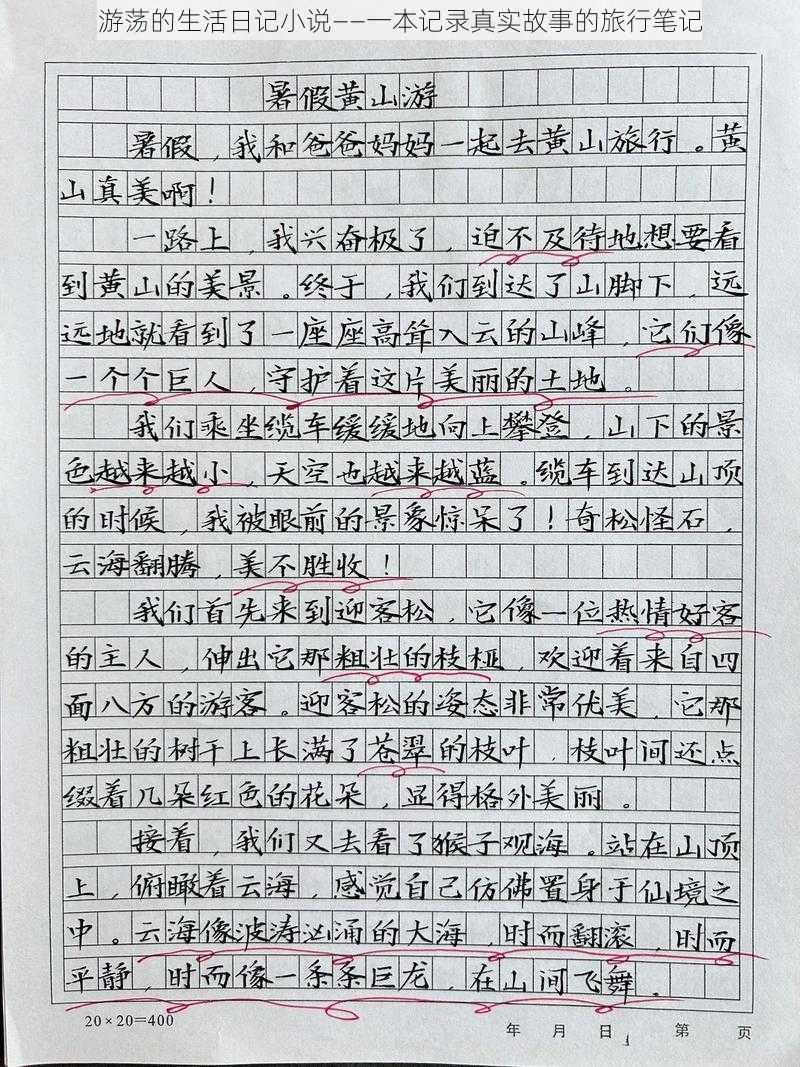 游荡的生活日记小说——一本记录真实故事的旅行笔记
暑假黄山游
暑假，我和爸爸妈妈一起去黄山旅行。黄
山真美啊！
一路上，我兴奋极了，迫不及待地想要看
到黄山的美景。终于，我们到达了山脚下，远
远地就看到了一座座高耸入云的山峰，它们像
一个个巨人，守护着这片美丽的土地。
我们乘坐缆车缓缓地向上攀登，山下的景
色越来越小，天空也越来越蓝。缆车到达山顶
的时候，我被眼前的景象惊呆了！奇松怪石，
云海翻腾，美不胜收！
我们首先来到迎客松，它像一位热情好客
的主人，伸出它那粗壮的枝桠，欢迎着来自四
面八方的游客。迎客松的姿态非常优美，它那
粗壮的树干上长满了苍翠的枝叶，枝叶间还点
缀着几朵红色的花朵，显得格外美丽。
接着，我们又去看了猴子观海。站在山顶
上，俯瞰着云海，感觉自己仿佛置身于仙境之
中。云海像波涛汹涌的大海，时而翻滚，时而
平静，时而像一条条巨龙，在山间飞舞。
20×20=400 年 月 日 第 页